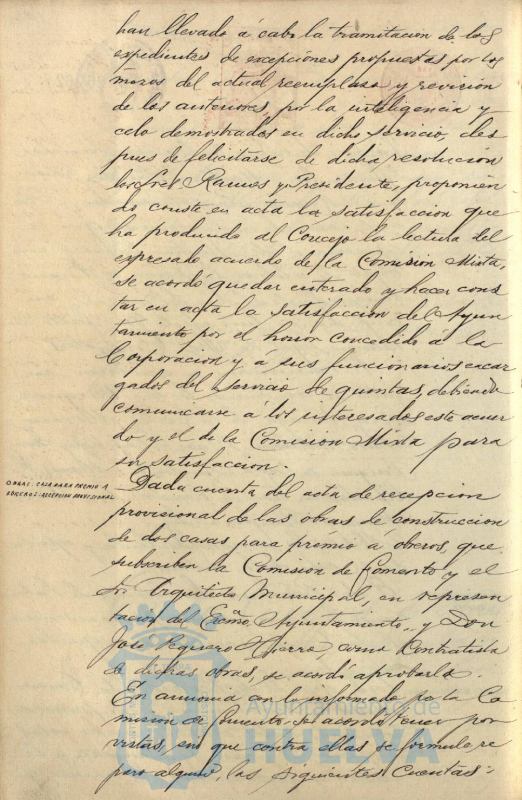 han llevado á cabo la tramitación de los
expedientes de excepciones propuestas por los
mozos del actual reemplazo y revisión
de los anteriores, por la inteligencia y
celo demostrados en dicho servicio, des
pues de felicitarse de dicha resolución
los Sres Ramos y Presidente, proponien
do conste en acta la satisfaccion que
ha producido al Concejo la lectura del
expresado acuerdo de la Comisión Mixta,
se acordó quedar enterado y hacer cons
tar en acta la satisfaccion del Ayun
tamiento por el honor concedido á la
Corporacion y á sus funcionarios encar
gados del servicio de quintas, debiendo
comunicarse á los interesados este acuer
do y el de la Comisión Mixta para
su satisfaccion.
OBRAS: CASA PARA PREMIO A
OBREROS: RECEPCION PROVISIONAL
Dada cuenta del acta de recepcion
provisional de las obras de construccion
de dos casas para premio á obreros, que
subscriben la Comisión de fomento y el
Sr Arquitecto Municipal, en represen
tacion del Excmo Ayuntamiento, y Don
José Peguero Sierra, como Contratista
de dichas obras, se acordó aprobarla.
En armonia con lo informado por la Co
misión de fomento se acordó tener por
vistas, sin que contra ellas se formule re
paro alguno, las siguientes cuentas:
Ayuntamiento de
HUELVA